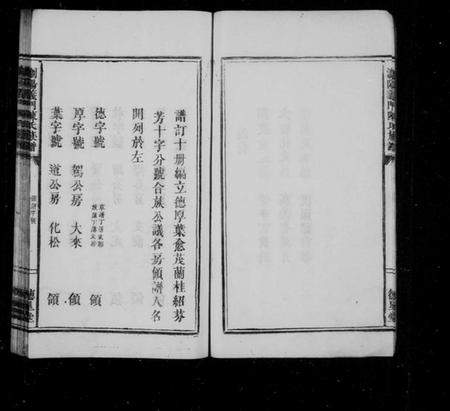 譜訂十册編立德厚葉愈茂蘭桂紹芬
芳十字分號合族公議各房領譜人名
開列於左
德字號 領
厚字號 駕公房 大來 領
葉字號 道公房 化松 領
義門陳氏族譜
德星堂